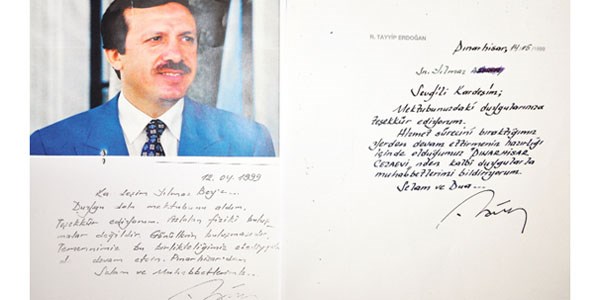 12.04.1999
Yılmaz Bey'e...
Duygu dolu mektubunu aldım.
Teşekkür ediyorum. fiziki buluş
malar değildir. Gönüllerin buluşmasıdır
Temennimiz bu birlikteliğimiz
devam etsin. Pınarhisar'dan
Selam ve Muhabbetlerimle..
R. TAYYİP ERDOĞAN
Pınarhisar, 14.05.1999
Sn. Yılmaz
Sevgili Kardeşim;
Mektubunuzdaki duygularınıza
teşekkür ediyorum.
Hizmet sürecini bıraktığımız
yerden devam ettirmenin hazırlığı
içinde olduğumuz PINARHİSAR
CEZAEVİ'nden kalbi duygularla
muhabbetlerimi bildiriyorum.
Selam ve Dua...